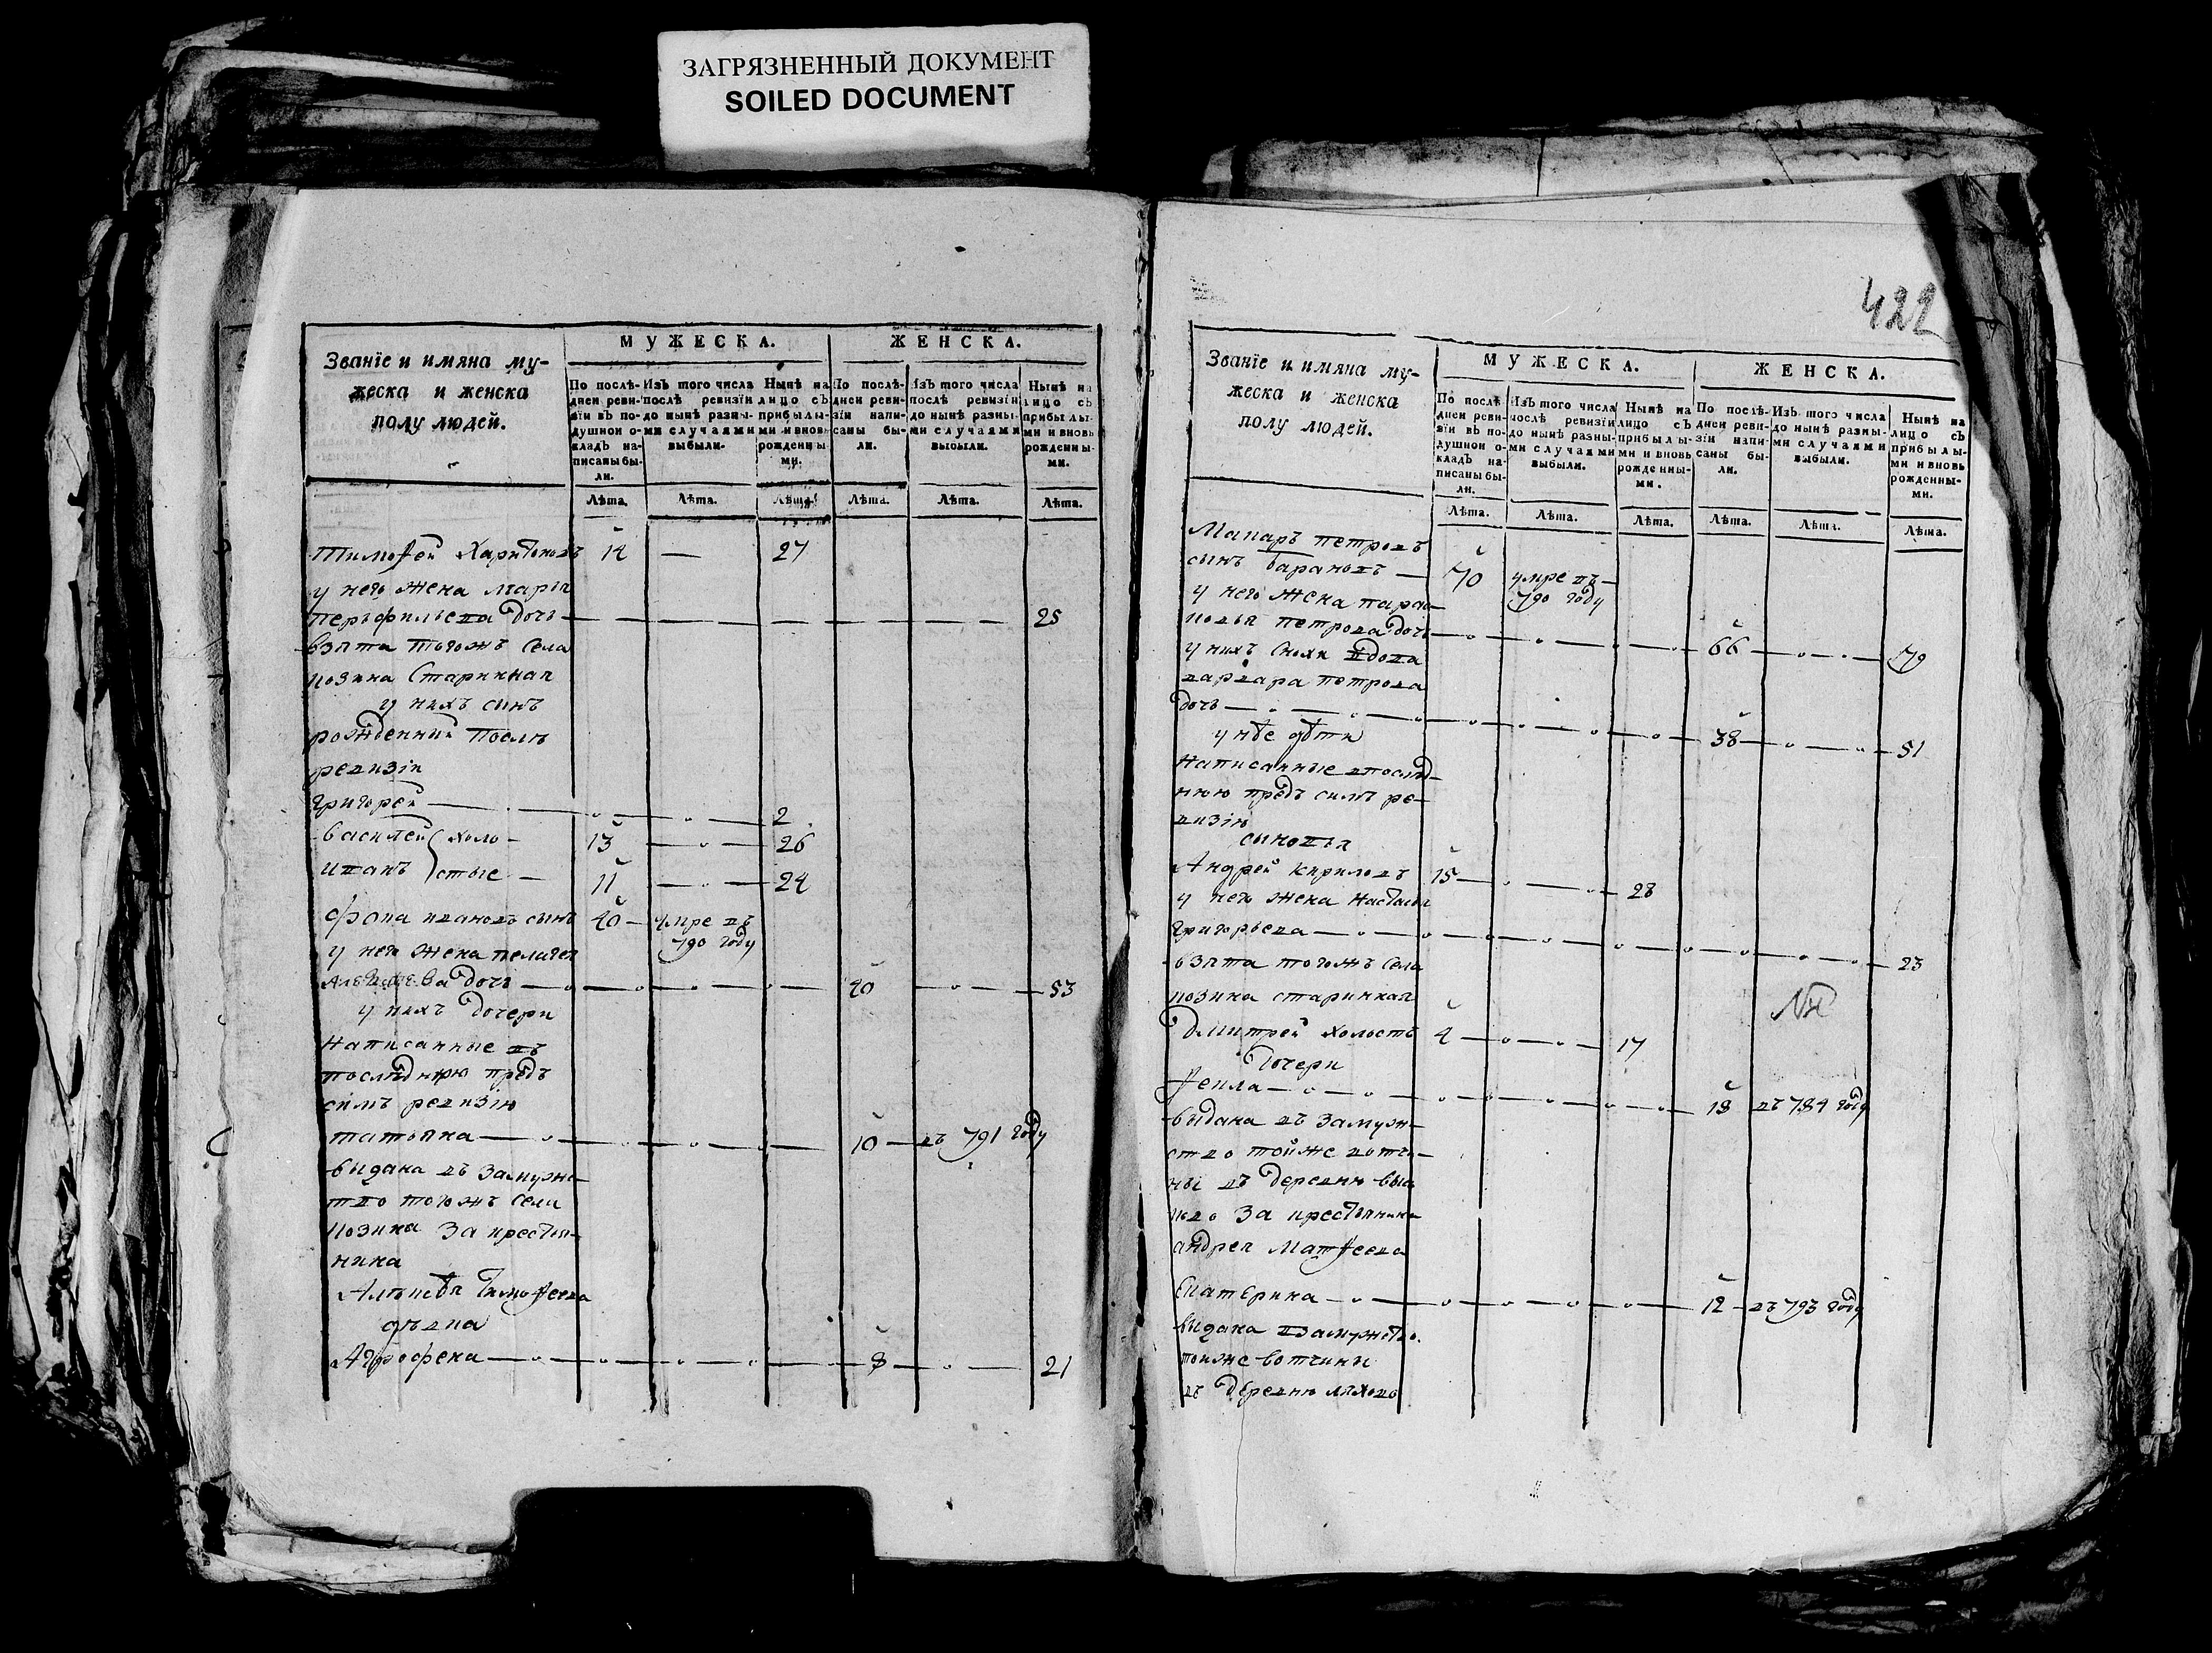 ЗАГРЯЗНЕННЫЙ ДОКУМЕНТ
SOILED DOCUMENT
Званїе и имяна му-
жеска и женска
полу людей.
МУЖЕСКА.
ЖЕНСКА.
По послѣ-
дней реви-
зїи въ по-
душной о-
кладъ на-
писаны бы-
ли.
Изъ того числа
послѣ ревизїи
до нынѣ разны-
ми случаями
выбыли.
Нынѣ на
лицо съ
прибылы-
ми и вновь
рожденны-
ми.
По послѣ-
дней реви-
зїи напи-
саны бы-
ли.
Изъ того числа
послѣ ревизїи
до нынѣ разны-
ми случаями
выбыли.
Нынѣ на
лицо съ
прибылы-
ми и вновь
рожденны-
ми.
Лѣта. Лѣта. Лѣта. Лѣта. Лѣта. Лѣта.
тимоѳей Харитоновъ 14 — 27
у него жена марья
перьфильева дочь — 25
взята тогожъ села
козина старинная
у нихъ сынъ
рожденный послѣ
ревизіи
григорей — 2
василей холо- 13 — 26
иванъ стые — 11 — 24
фока ивановъ сынъ 40 — умре въ
790 году
у него жена пелагея
дочь — 40 — 53
у нихъ дочери
написанные въ
последнюю предъ
симъ ревизію
татьяна — 10 — въ 791 году
выдана въ замужс-
тво тогожъ села
козина за крестья-
нина
Алексея Тимофеева
девка
Агрофена — 8 — 21
422
Званїе и имяна му-
жеска и женска
полу людей.
МУЖЕСКА.
ЖЕНСКА.
По послѣ-
дней реви-
зїи въ по-
душной о-
кладъ на-
писаны бы-
ли.
Изъ того числа
послѣ ревизїи
до нынѣ разны-
ми случаями
выбыли.
Нынѣ на
лицо съ
прибылы-
ми и вновь
рожденны-
ми.
По послѣ-
дней реви-
зїи напи-
саны бы-
ли.
Изъ того числа
до нынѣ разны-
ми случаями
выбыли.
Нынѣ на
лицо съ
прибылы-
ми и вновь
рожденны-
ми.
Лѣта. Лѣта. Лѣта. Лѣта. Лѣта. Лѣта.
Макаръ петровъ
сынъ барановъ — 70 умре въ
790 году
у него жена парас-
ковья петрова дочь — 66 — 79
у нихъ сноха вдова
варвара петрова
дочь — 38 — 51
у нее дети
написанные впослѣд-
нюю предъ симъ ре-
визію
сыновья
Андрей кириловъ 15 — 28
у него жена настасья
григорьева — 23
взята тогожъ села
козина старинная
Дмитрей холостъ 4 — 17
дочери
Фекла — 18 въ 784 году
выдана въ замуж-
ство тойже вотчи-
ны въ деревню
за крестьянина
андрея Матѳеева
Екатерина — 12 — въ 793 году
выдана взамужство
тойже вотчины
въ деревню ляхово